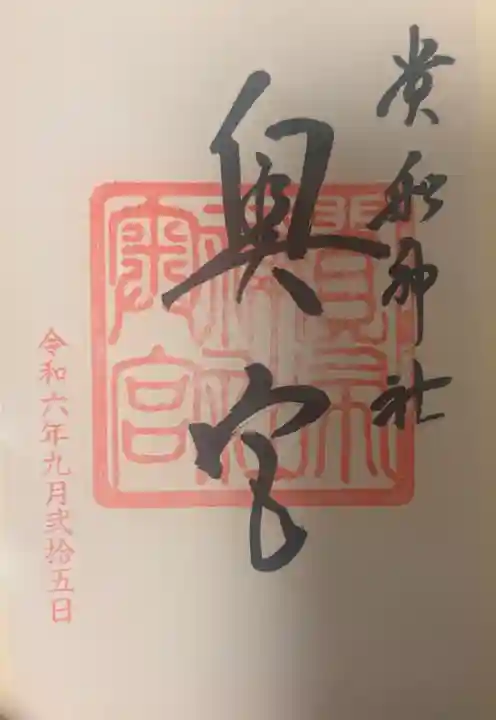 貴船神社
奥宮
貴船神社奥宮
令和六年九月弐拾五日